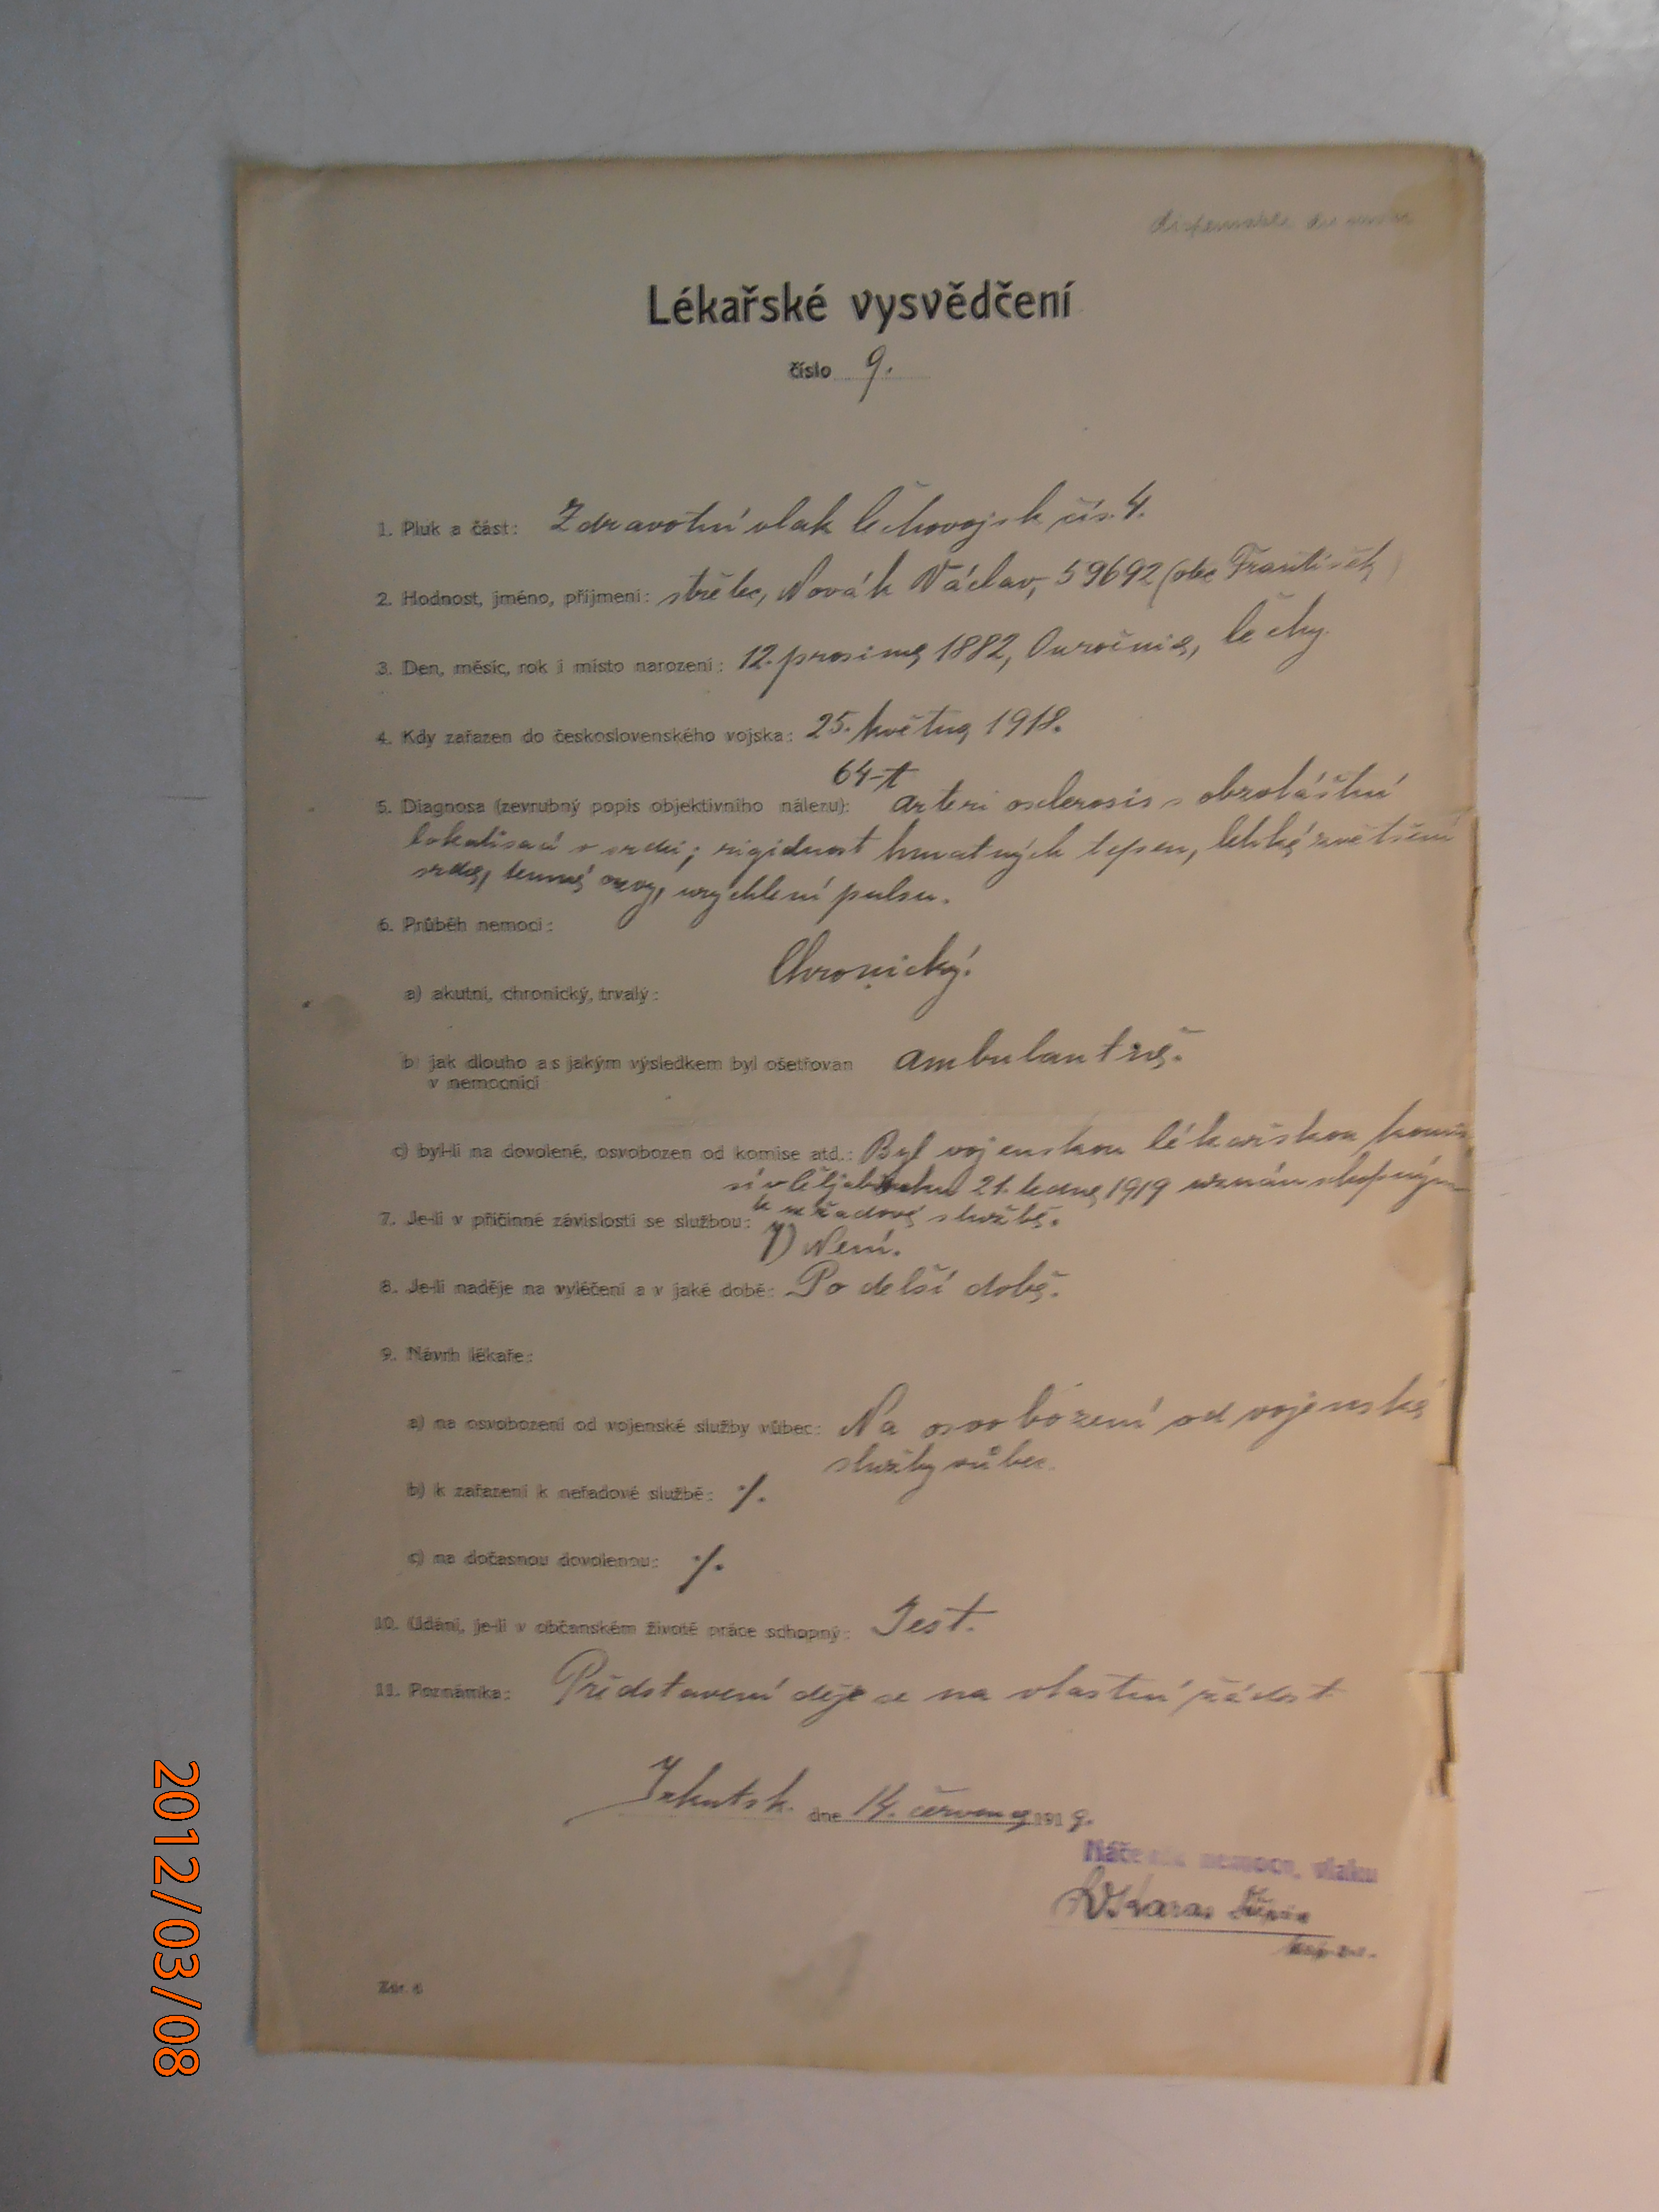 Lékařské vysvědčení
číslo 9.
1. Pluk a část: Zdravotní vlak čís. 4.
2. Hodnost, jméno, příjmení: střelec, Novák Václav, 59692 (otec František)
3. Den, měsíc, rok i místo narození: 12. prosince 1882, Čechy.
4. Kdy zařazen do československého vojska: 25. května 1918.
64-t
5. Diagnosa (zevrubný popis objektivního nálezu): arteriosclerosis s obzvláštní
lokalisací v srdci; rigidnost hmatných tepen, lehké zvětšení
srdce, temné ozvy, urychlení pulsu.
6. Průběh nemoci:
a) akutní, chronický, trvalý: Chronický.
b) jak dlouho a s jakým výsledkem byl ošetřován ambulantně.
v nemocnici
c) byl-li na dovolené, osvobozen od komise atd.: Byl vojenskou lékařskou komis
sí v Čeljabinsku 21. ledna 1919 uznán schopným
k neřadové službě.
7. Je-li v příčinné závislosti se službou:
7) Není.
8. Je-li naděje na vyléčení a v jaké době: Po delší době.
9. Návrh lékaře:
a) na osvobození od vojenské služby vůbec: Na osvobození od vojenské
služby vůbec.
b) k zařazení k neřadové službě: ·/.
c) na dočasnou dovolenou: ·/.
10. Udání, je-li v občanském životě práce schopný: Jest.
11. Poznámka: Představení děje se na vlastní žádost
Irkutsk. dne 14. června 1919.
nemocn. vlaku
Karas
Zdr. 6
2012/03/08